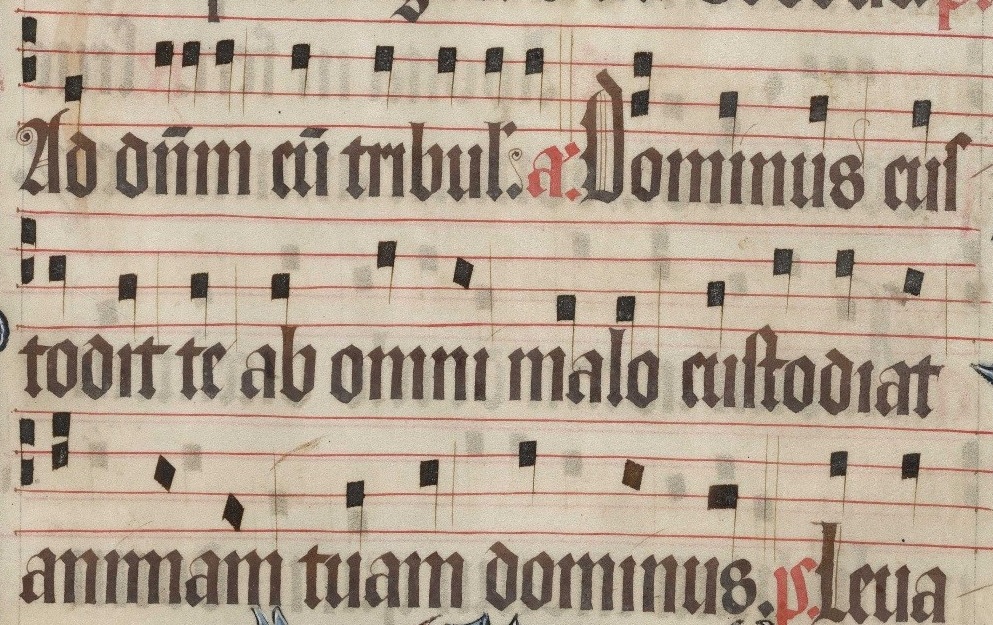 Ad dn̄m cū tribul. a. Dominus cus
todit te ab omni malo custodiat
animam tuam dominus. ps. Leua